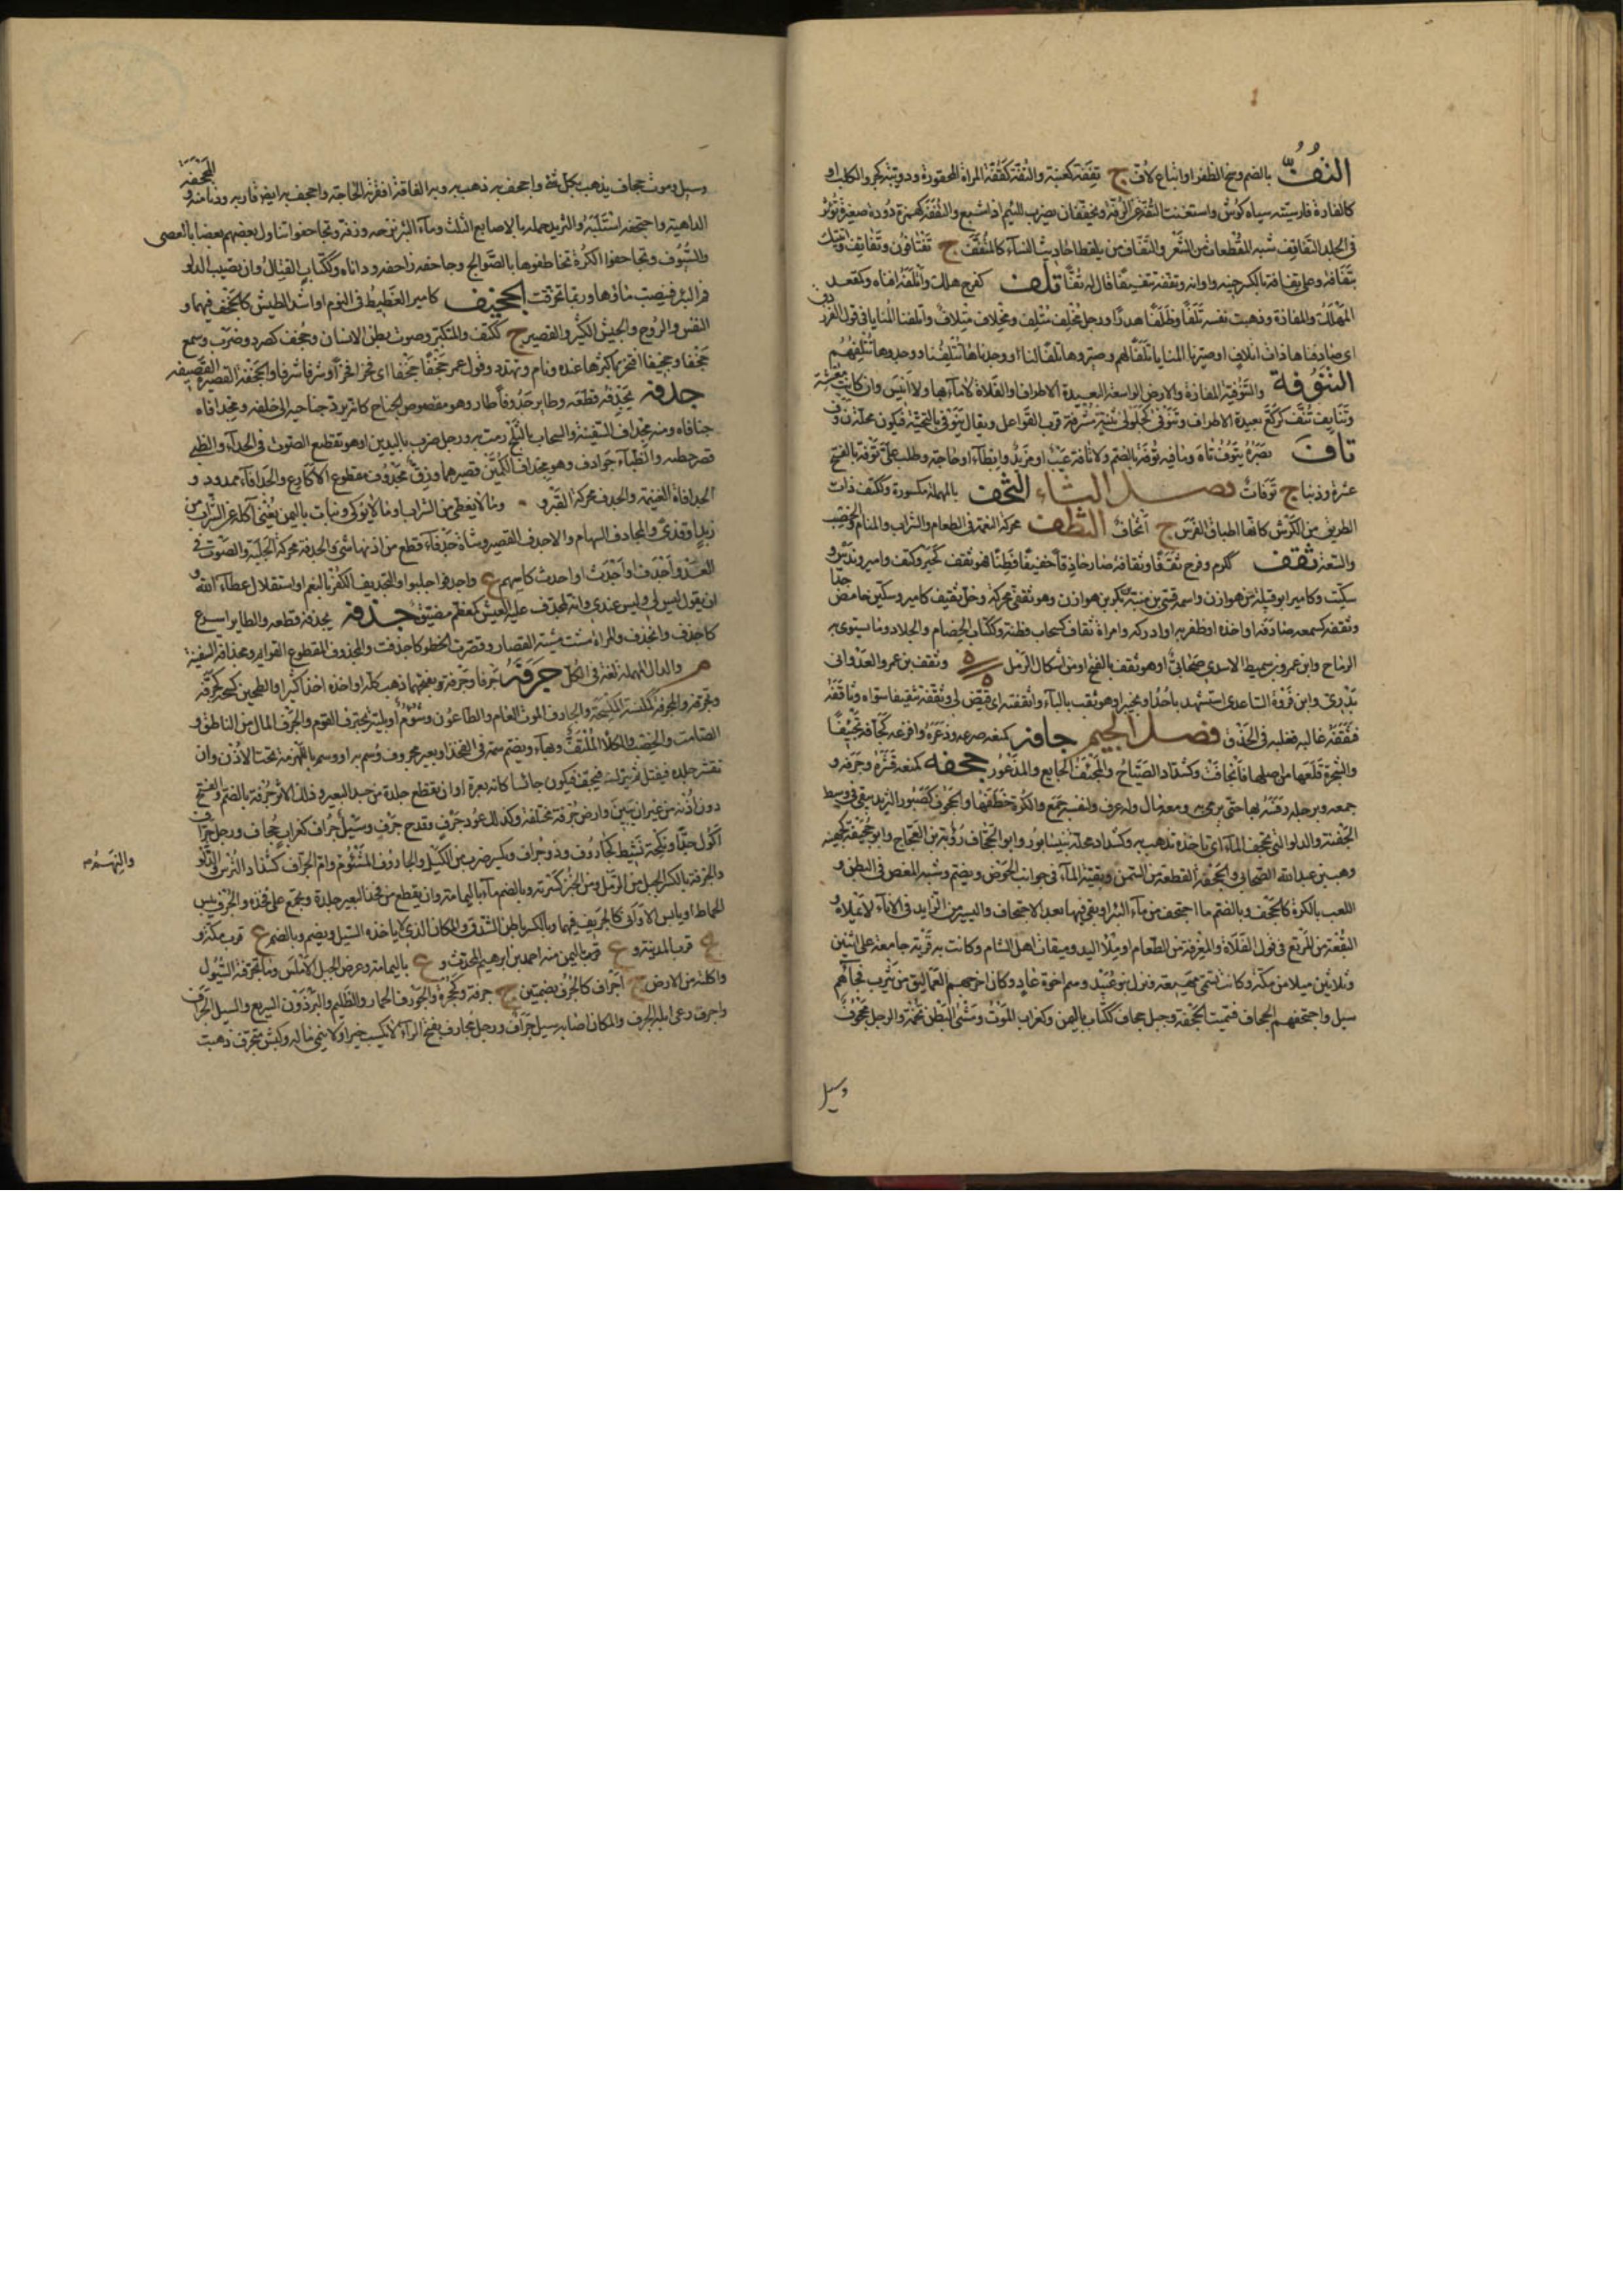 التُّفُّ بالضم وسخ الظفر او اتباع لاف ج تففة كعنبة والتفة كقفة المراة المحقورة ودويبة كجرو الكلب او
كالفارة فارسيته سياه كوش واستغنت التفة عن الرفة ويخففان يضرب للئيم اذا شبع والتففة كهمزة دودة صغيرة تؤثر
فى الجلد التفاتف شبه المقطعات من الشعر والتفاف من يلقط احاديث النساء كالمتفتف ج تفتافون وتفاتف واتيتك
بتفانه وعلى تفانه بالكسر حينه واوانه وتففه تتفيفا قال له تفا تلف كفرح هلك واتلفه افناه وكمقعد
المهلك والمفازة وذهبت نفسه تلفا وظلفا هدرا ورجل مخلف متلف ومخلاف متلاف واتلفنا المنايا فى قول الفرزدق
اى صادفناها ذات اتلاف او صيرنا المنايا تلفا لهم وصيروها تلفا لنا او وجدناها تتلفنا ووجدوها تتلفهم
التنوفة والتنوفية المفازة والارض الواسعة البعيدة الاطراف او الفلاة لا ماء بها ولا انيس وان كانت معشبة
وتنايف تنف كركع بعيدة الاطراف وتنوفى كجلولى ثنية مشرفة قرب القواعل ويقال ينوفى بالتحتية فيكون محله ن و ف
تاف بصره يتوف تاه وما فيه توفة بالضم ولا تافة عيب او مزيد وابطاء او حاجة وطلب على توفة بالفتح
عثرة وذنبا ج توفات فصل الثاء الثحف بالمهملة مكسورة وككتف ذات
الطريق من الكرش كانها اطباق الفرث ج اثحاف الثطف محركة النعمة فى الطعام والشراب والمنام والخصب
والسعة ثقف ككرم وفرح ثقفا وثقفا وثقافة صار حاذقا خفيفا فطنا فهو ثقف كحبر وكتف وامير وندس و
سكيت وكامير ابو قبيلة من هوازن واسمه قسى بن منبه بن بكر بن هوازن وهو ثقفى محركة وخل ثقيف كامير وسكين حامض جدا
وثقفه كسمعه صادفه او اخذه او ظفر به او ادركه وامراة ثقاف كسحاب فطنة وككتاب الخصام والجلاد وما تسوى به
الرماح وابن عمرو بن سميط الاسدى صحابى او هو ثقف بالفتح او من اشكال الرمل وثقف بن عمرو العدوانى
بدرى وابن فروة الساعدى استشهد باحد او بخيبر او هو ثقب بالباء واثقفته اى قيض لى وثقفه تثقيفا سواه وثاقفه
فثقفه غالبه فغلبه فى الحذق فصل الجيم جافه كمنعه صرعه وذعره وافزعه كجأفه تجئيفا
والشجرة قلعها من اصلها فانجافت وكشداد الصياح والمجئف الجايع والمذعور جحفه كمنعه قشره وجرفه و
جمعه وبرجله رفسه بها حتى يرمى به ومعه مال وله غرف ولنفسه جمع والكرة خطفها والجحوف كصبور الثريد يبقى فى وسط
الجفنة والدلو التى تجحف الماء اى تاخذه وتذهب به وكشداد محلة بنيسابور وابو الجحاف رؤبة بن العجاج وابو جحيفة كجهينه
وهب بن عبد الله الصحابى والجحفة القطعة من السمن وبقية الماء فى جوانب الحوض ويضم وشبه المغص فى البطن و
اللعب بالكرة كالجحف وبالضم ما اجتحف من ماء البئر او بقى فيها بعد الاجتحاف واليسير من الثريد فى الاناء لا يملاه و
النقطة من المرتع فى قوز الفلاة والغرفة من الطعام او ملء اليد وميقات اهل الشام وكانت به قرية جامعة على اثنين
وثلاثين ميلا من مكة وكانت تسمى مهيعة فنزل بنو عبيد وهم اخوة عاد وكان اخرجهم العماليق من يثرب فجاءهم
سيل واجتحفهم الجحاف فسميت الجحفة وجبل جحاف ككتاب باليمن وكغراب الموت ومشى البطن عن تخمة والرجل مجحوف
وسيل
وسيل وموت جحاف يذهب بكل شئ واجحف به ذهب به وبه الفاقة افقرته الحاجة واجحف به ايضا قاربه ودنا منه و المجحفة
الداهية واجتحفه استلبه والثريد حمله بالاصابع الثلث وماء البئر نزحه ونزفه وتجاحفوا تناول بعضهم بعضا بالعصى
والسيوف وتجاحفوا الكرة تخاطفوها بالصوالج وجاحفه زاحفه وداناه وككتاب القتال وان تصيب الدلو
فم البئر فينصب ماؤها وربما تخرقت الجخيف كامير الغطيط فى النوم او اشد الطيش كالجخف فيهما و
النفس والروح والجيش الكثير والقصير ج ككتف والمتكبر وصوت بطن الانسان وجخف كصرد وضرب وسمع
جخفا وجخيفا افتخر باكثر مما عنده ونام وتهدد وقول عمر جخفا جخفا اى فخرا فخرا وشرفا شرفا والجخفة القصيرة القضيفة
جدفه يجدفه قطعه وطاير جدوفا طار وهو مقصوص الجناح كانه يرد جناحيه الى خلفه ومجدافاه
جناحاه ومنه مجداف السفينة والسحاب بالثلج رمت به ورجل ضرب باليدين او هو تقطيع الصوت فى الحداء والظبى
قصر خطمه والظباء جوادف وهو مجدوف الكمين قصيرهما وزق مجدوف مقطوع الاكارع والجدافاء ممدود و
الجدافاة الغنيمة والجدف محركة القبر و وما لا يغطى من الشراب او ما لا يوكى ونبات باليمن يغنى آكله عن الشراب من
زبد او قذى والمجادف السهام والاجدف القصير وشاة جدفاء قطع من اذنها شئ والجدفة محركة الجلبة والصوت فى
العدو واجدف او اجدث او احدث كاسهم ع واجدفوا جلبوا والتجديف الكفر بالنعم او استقلال عطاء الله و
ان يقول ليس لى وليس عندى وانه لمجدف عليه العيش كمعظم مضيق جذفه يجذفه قطعه والطاير اسرع
كاجذف وانجذف والمراة مشت مشية القصار وقصرت الخطو كاجذفت والمجذوف المقطوع القوائم ومجذاف السفينة
م والدال المهملة لغة فى الكل جرفه جرفا وجرفة بفتحهما ذهب به كله او اخذه اخذا كثيرا والطين كسحه كجرفه
وتجرفه والمجرفة المكسة المكسحة والجارف الموت العام والطاعون وشؤم او بلية تجترف القوم والجرف المال من الناطق و
الصامت والخصب والكلأ الملتف وبهاء ويضم سمة فى الفخذ او بعير مجروف وسم به او وسم باللهزمة تحت الاذن وان
تقشر جلده فيفتل ثم يترك فيجف فيكون جاسا كانه بعرة او ان تقطع جلدة من جسد البعير وذلك الاثر جرفة بالضم والفتح
دون اذنه من غير ان تبين وارض جرفة مختلفة وكذلك عود جرف وقدح جرف وسيل جراف كغراب جحاف ورجل جراف
اكول جدا ونكحة نشيط كجاروف وذو جراف وكيل ضرب من الكيل والجاروف المشئوم وام الجراف كشداد الترس والدلو
والجرفة بالكسر الحبل من الرمل ومن الخبز كسرته وبالضم ماء باليمامة وان يقطع من فخذ البعير جلدة وتجمع على فخذه والجرف يبس
والنهم
الحماط او يابس الافانى كالجريف فيهما وبالكسر باطن الشدق والمكان الذى لا ياخذه السيل ويضم وبالضم ع قرب مكة و
ع قرب المدينة و ع قرب باليمن منه احمد بن ابرهيم المحدث و ع باليمامة وعرض الجبل الاملس وما تجرفته السيول
واكلته من الارض ج اجراف كالجرف بضمتين ج جرفة وكجحرة والجورف الحمار والظليم والبرذون السريع والسيل الجراف
واجرف رعى ابله الجرف والمكان اصابه سيل جراف ورجل مجارف بفتح الراء لا يكسب خيرا ولا ينمى ماله وكبش متجرف ذهبت